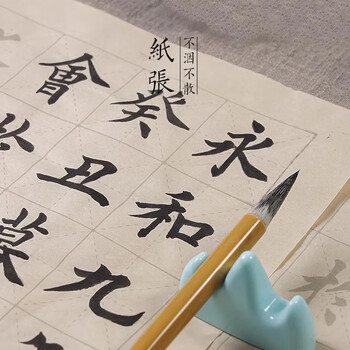 紙張
不洇不散
永和九
癸丑
會